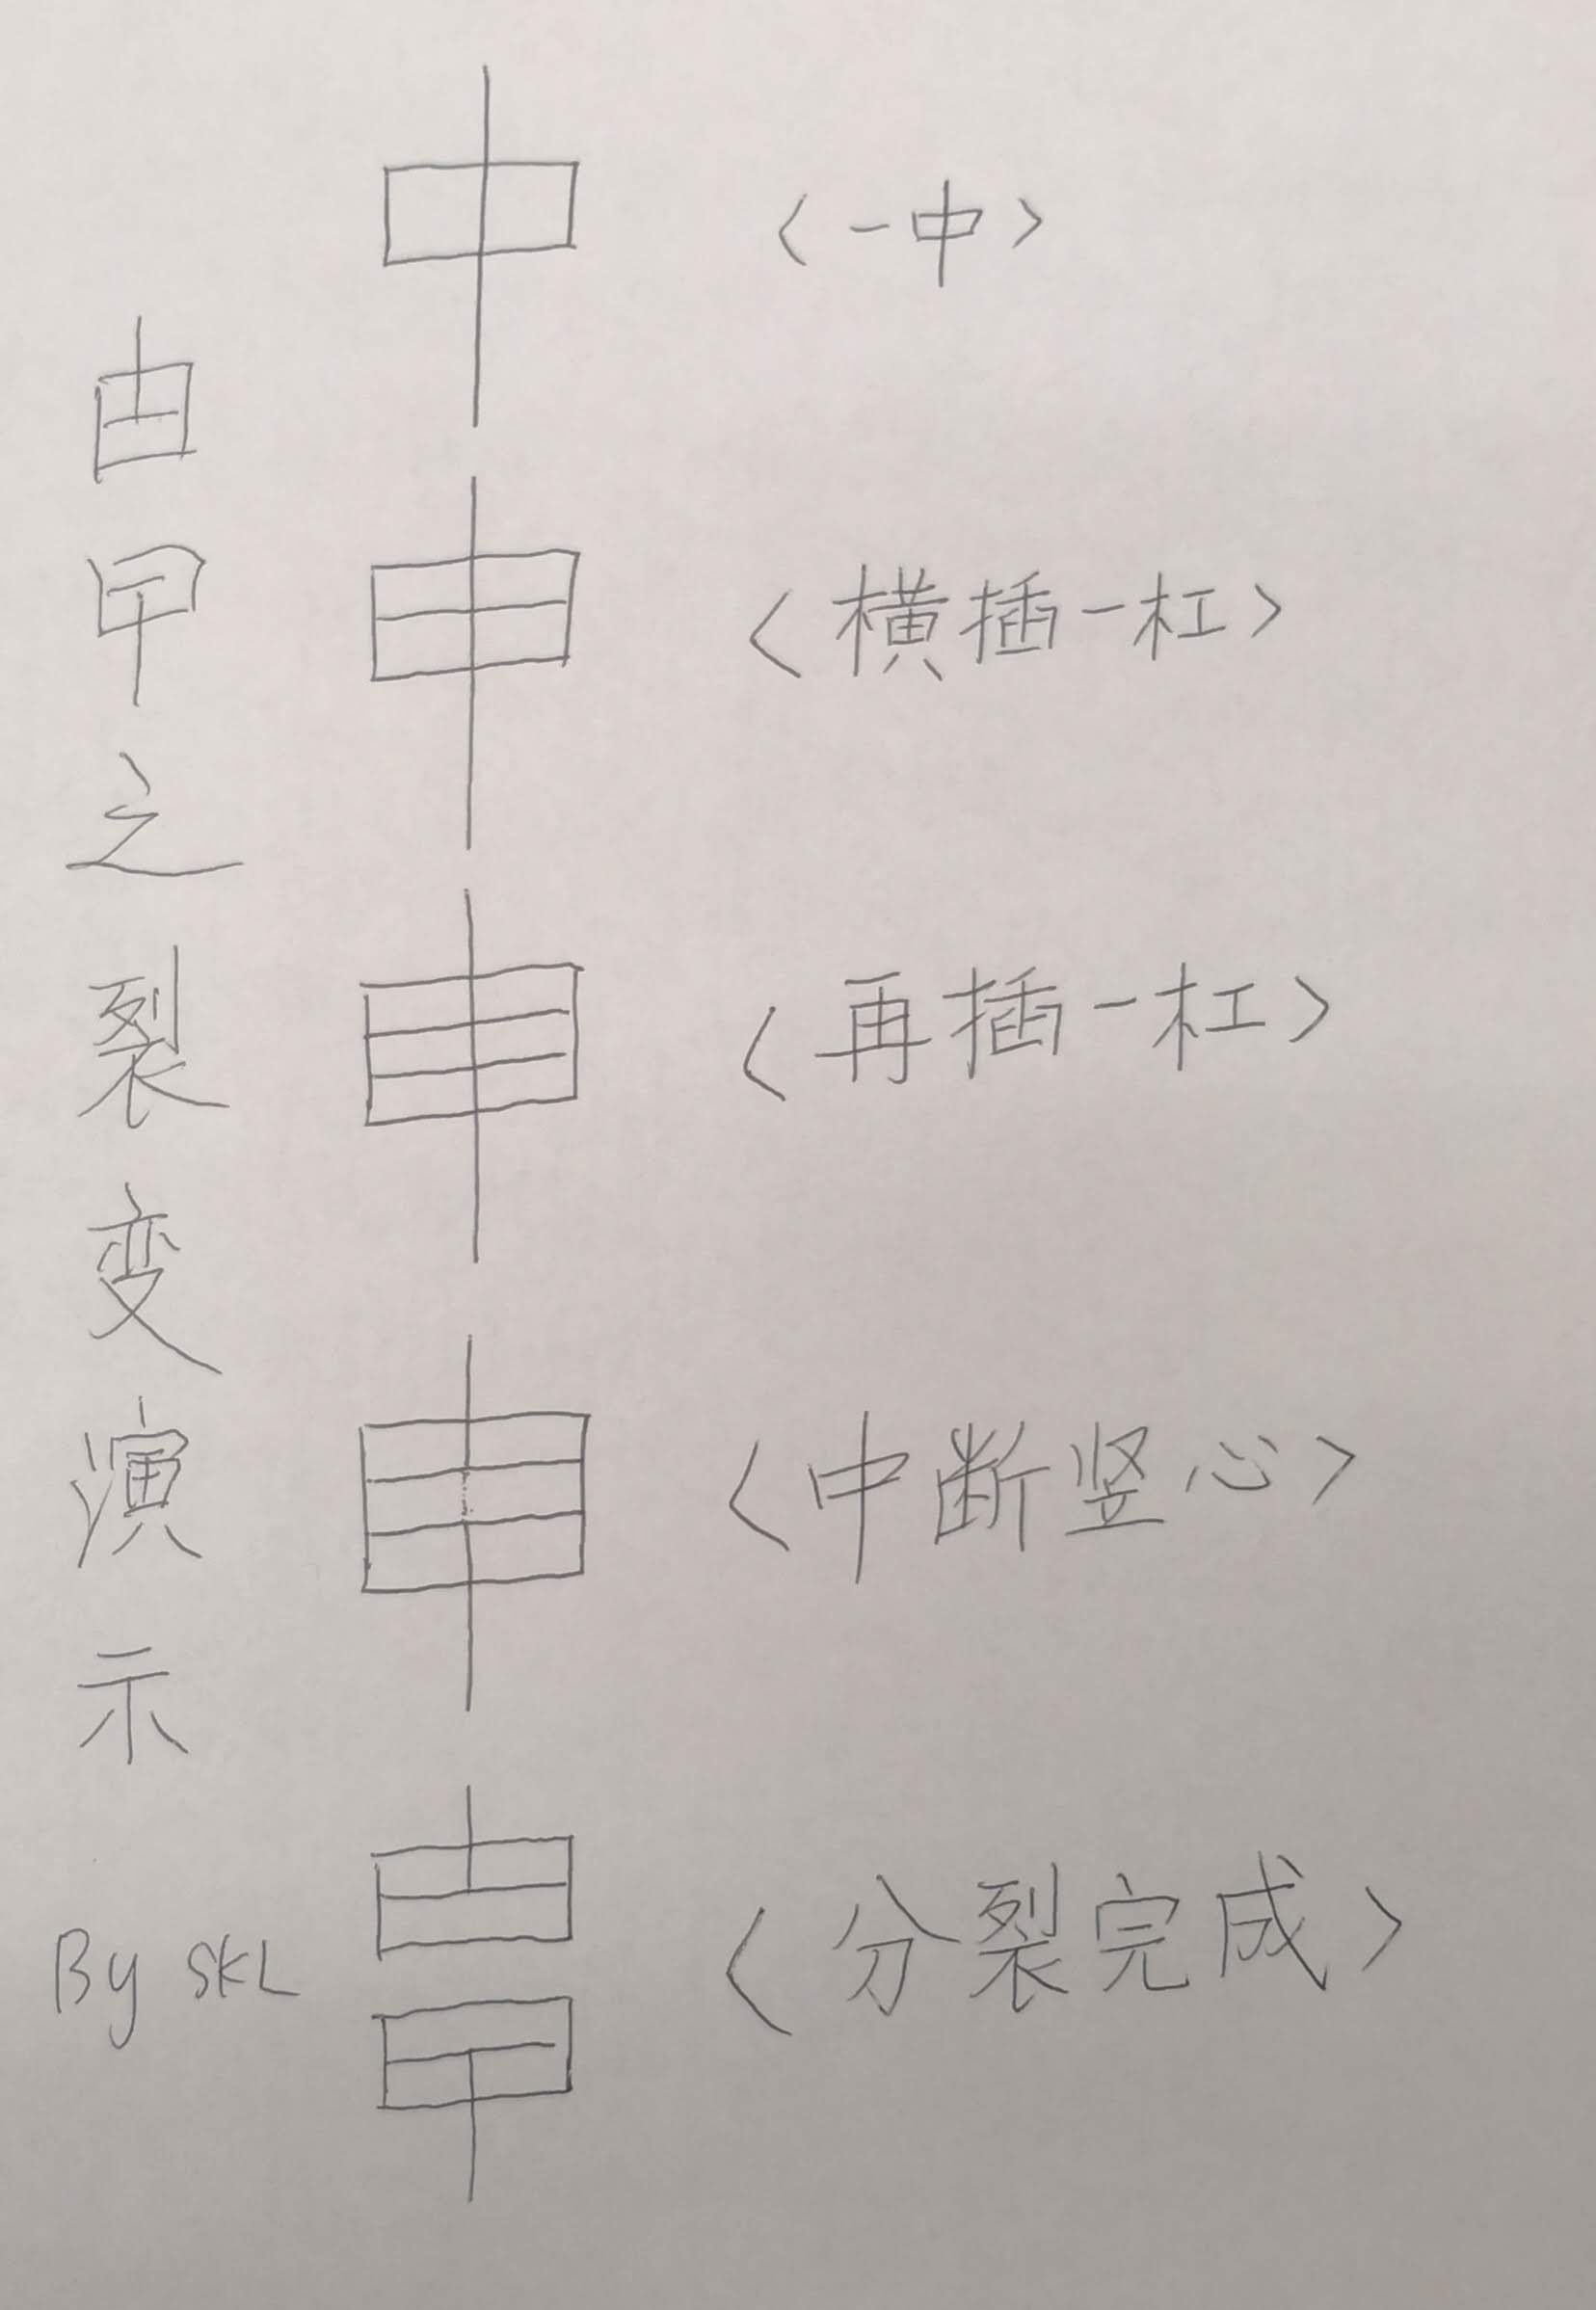 甴曱之裂变演示
By SKL
中 <一中>
申 <横插一杠>
<再插一杠>
<中断竖心>
甴
曱 <分裂完成>